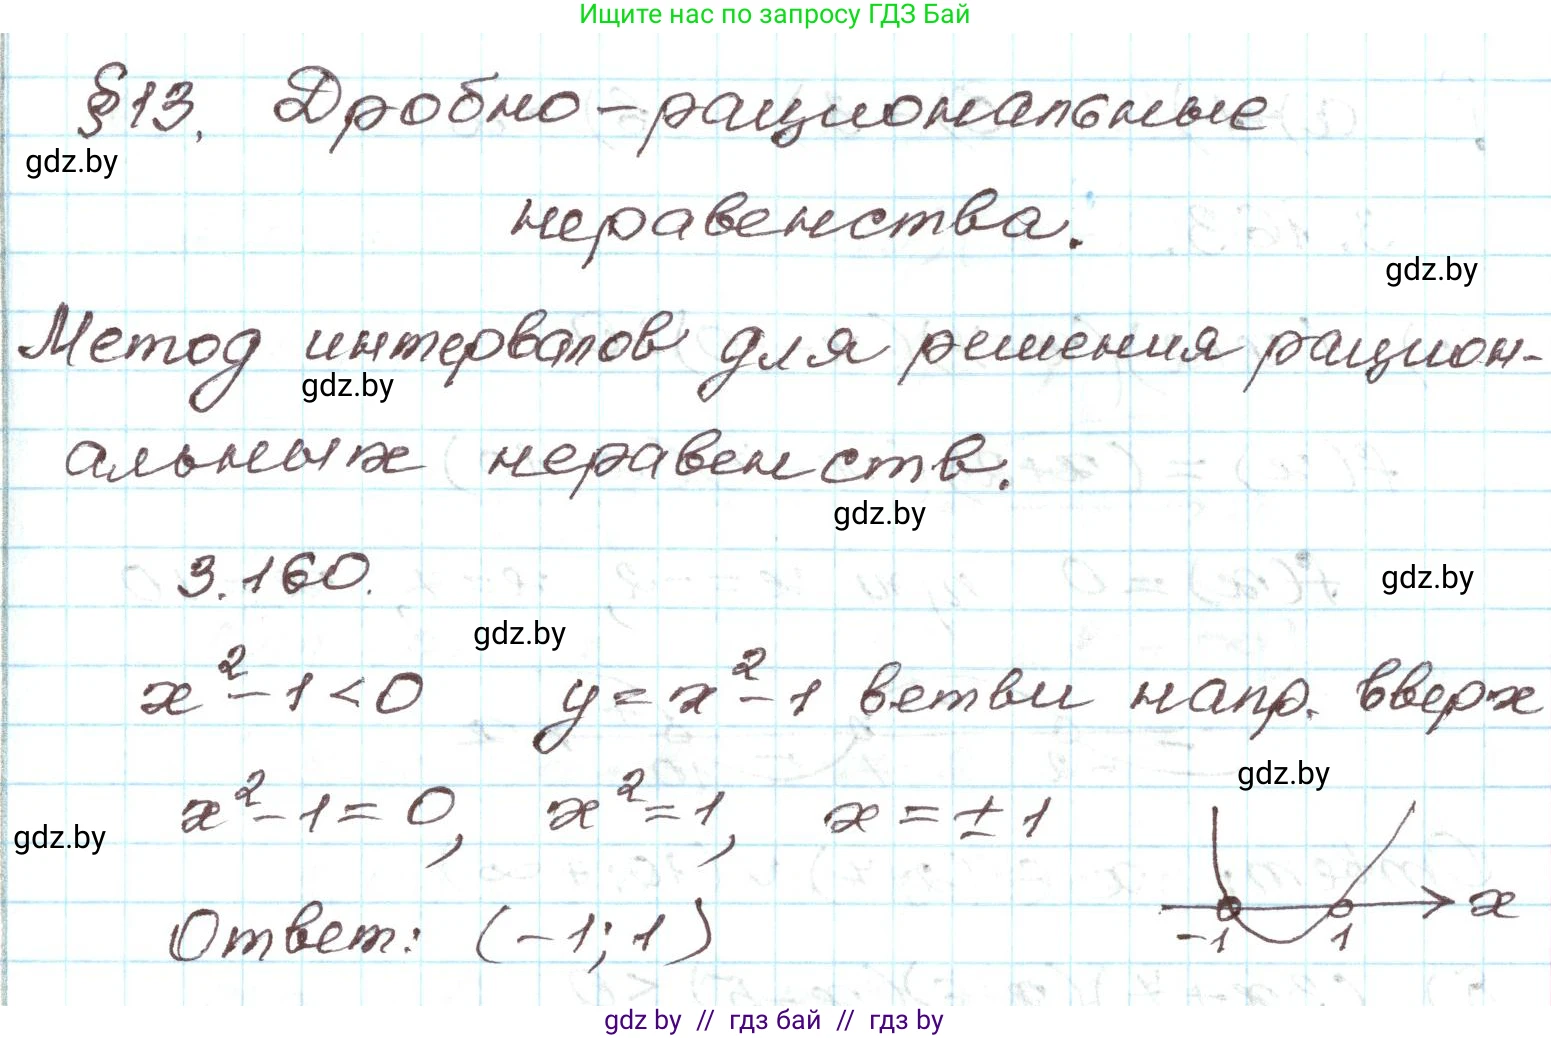 Ищите нас по запросу ГДЗ Бай
§13. Дробно-рациональные
gdz.by
неравенства.
gdz.by
Метод интервалов для решения рацион-
gdz.by
альных неравенств.
gdz.by
3.160.
gdz.by
gdz.by
x²-1<0 y=x²-1 ветви напр. вверх
gdz.by
x²-1=0, x²=1, x=±1
gdz.by
x
-1 1
Ответ: (-1; 1)
gdz by // гдз бай // гдз by